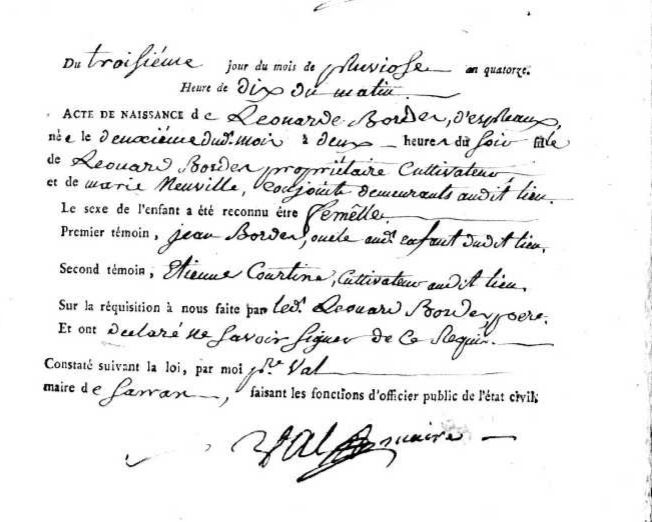 Du troisiéme jour du mois de pluviose an quatorze.
Heure de dix du matin
ACTE DE NAISSANCE de Leonarde Bordes, d'espleaux,
née le deuxiéme dud. mois à deux heures du soir fille
de Leonard Bordes propriétaire Cultivateur,
et de marie Neuville, conjoints demeurants audit lieu.
Le sexe de l'enfant a été reconnu être femêlle
Premier témoin, jean Bordes, oncle aud. enfant dudit lieu,
Second témoin, Etienne Courtine, Cultivateur audit lieu,
Sur la réquisition à nous faite par led. Leonard Bordes pere.
Et ont declaré ne savoir signer de ce Requis.
Constaté suivant la loi, par moi pre. Val
maire de Sarran, faisant les fonctions d'officier public de l'état civil.
Val maire